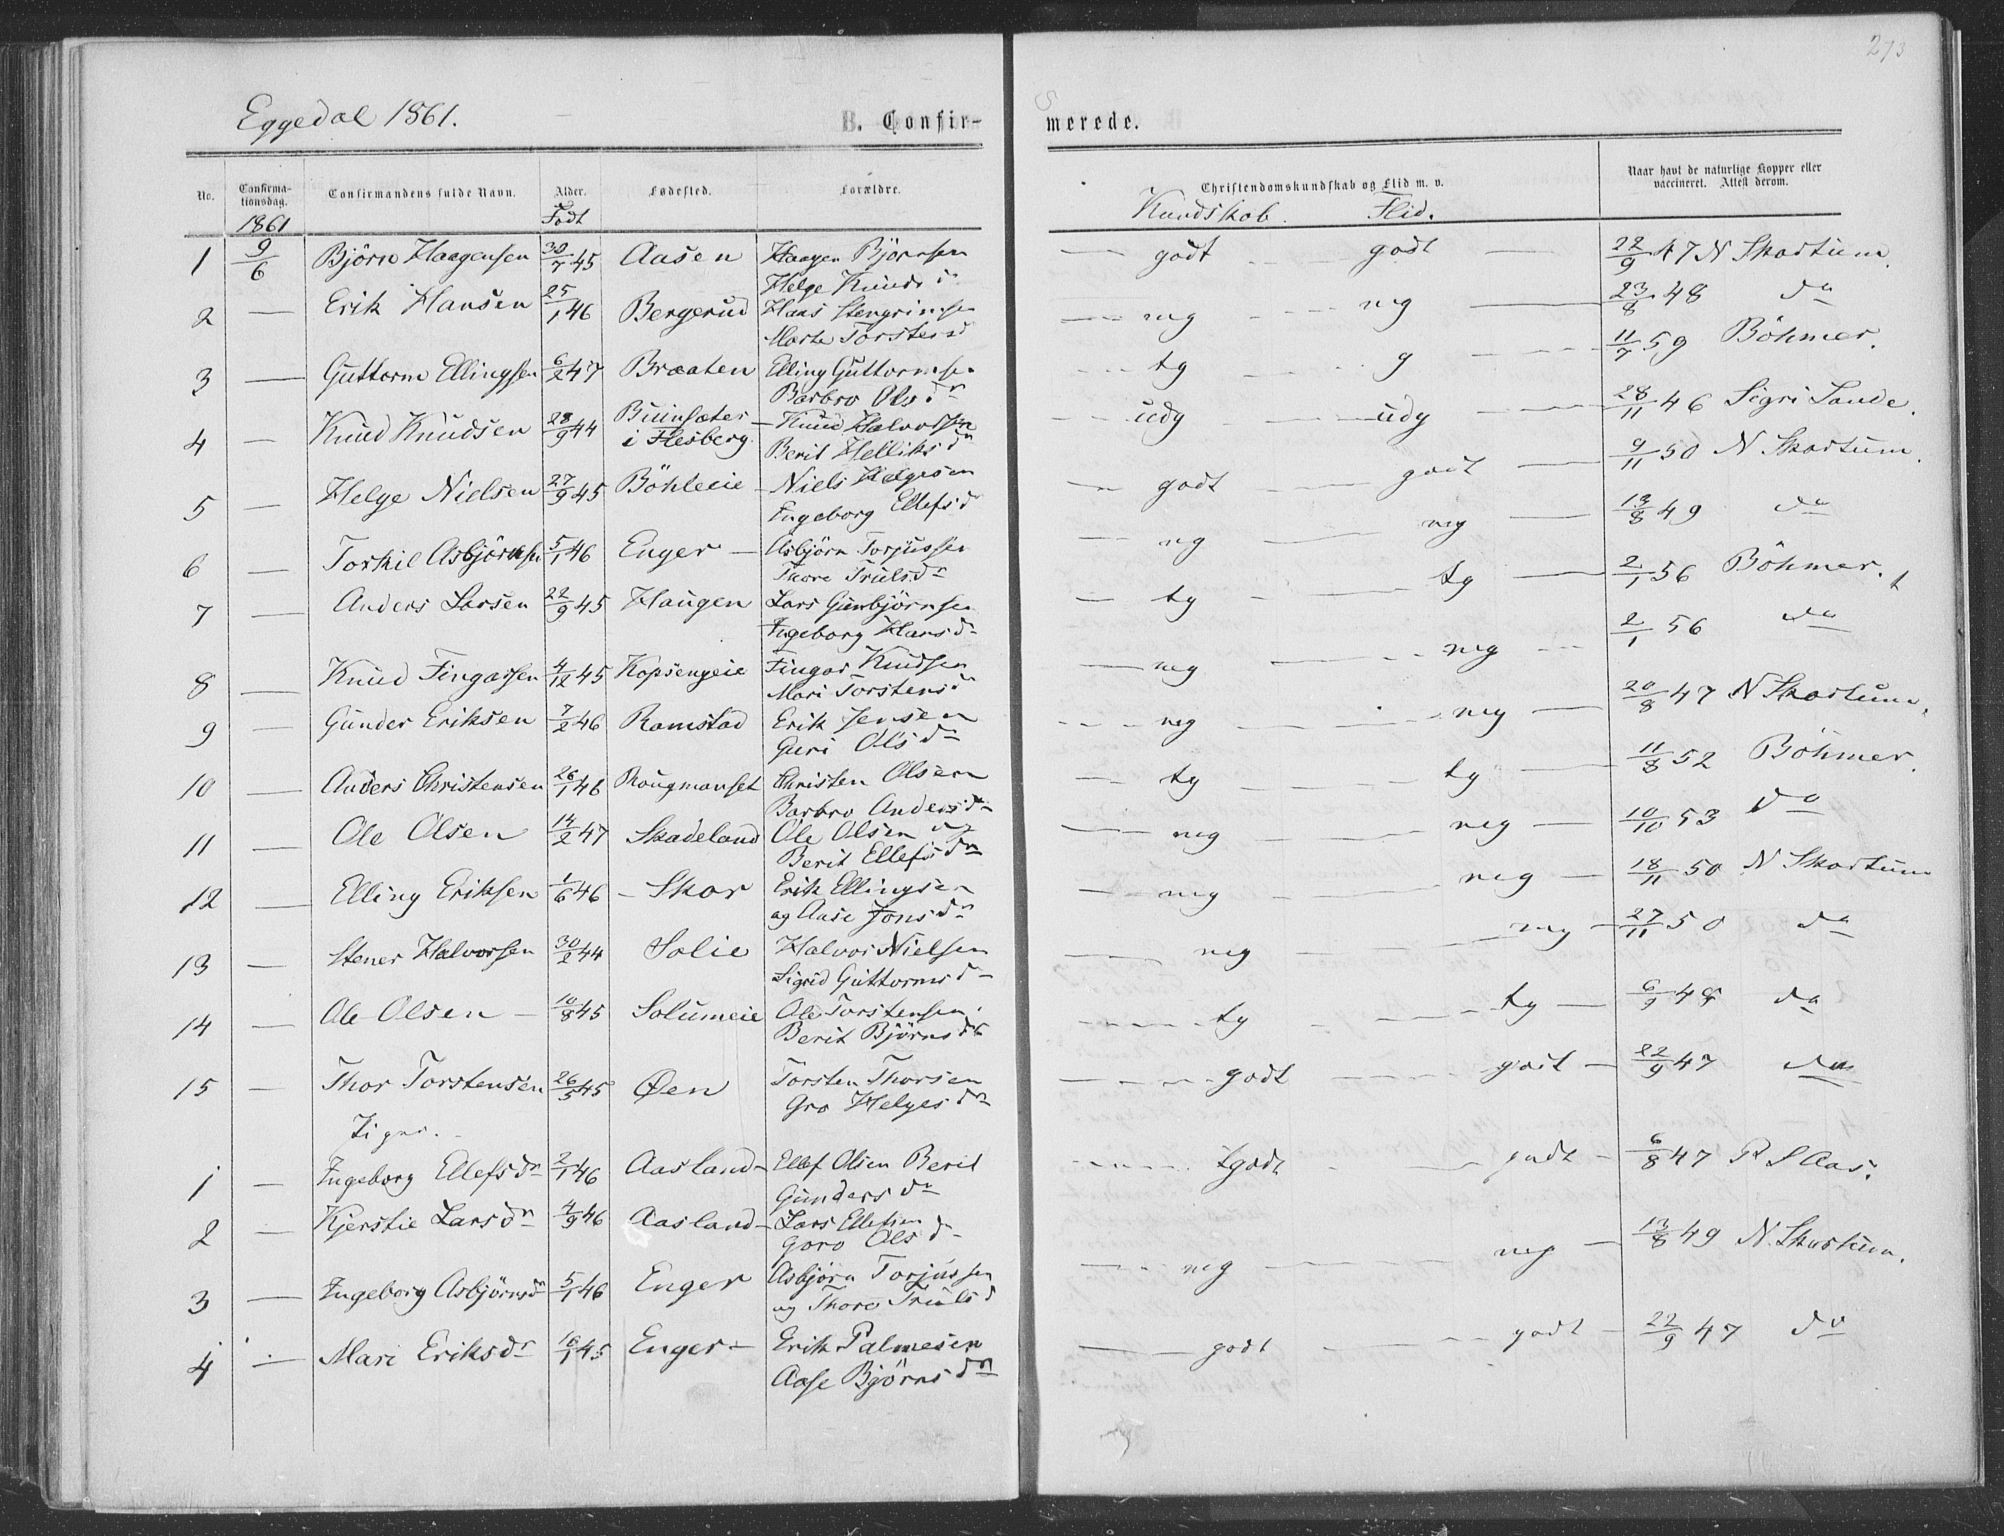 273
Eggedal 1861.
B. Confirmerede.
No. Confirmationsdag. Confirmandens fulde Navn. Alder. Fødested. Forældre. Christendomskundskab og Flid m. v. Naar havt de naturlige Kopper eller vaccineret. Attest derom.
1861 Født Kundskab. Flid.
1 9/6 Björn Haagensen 30/7 45 Aasen Haagen Björnsen godt godt 22/9 47 N Skartum
Helge Knuds d
2 — Erik Hansen 25/1 46 Bergerud Hans Stengrimsen mg mg 23/8 48 do
Marte Torstensd
3 — Guttorm Ellingsen 6/2 47 Braaten Elling Guttormsen tg g 11/7 59 Böhmer.
Barbro Olsdr
4 — Knud Knudsen 28/9 44 i Flesberg — Knud Halvorsen udg udg 28/11 46 Sigri Sande.
Berit Helliksd
5 — Helge Nielsen 27/9 45 Böhleeie — Niels Helgesen godt godt 9/11 50 N Skartum.
Ingeborg Ellefsd
6 — Torkil Asbjörnsen 5/1 46 Enger — Asbjörn Torjussen mg mg 13/8 49 do
Thore Trulsdr
7 — Anders Larsen 22/9 45 Haugen Lars Gunbjörnsen tg tg 2/1 56 Böhmer.
Ingeborg Hansd
8 — Knud Fingarsen 4/12 45 Kopsengeie Fingar Knudsen mg mg 2/1 56 do
Mari Torstensd
9 — Gunder Eriksen 7/2 46 Ramstad Erik Jensen mg mg 20/8 47 N Skartum.
Guri Olsd
10 — Anders Christensen 26/1 46 Christen Olsen tg tg 11/8 52 Böhmer.
Barbro Andersd
11 — Ole Olsen 14/2 47 Skadeland Ole Olsen og mg mg 10/10 53 do
Berit Ellefsdr
12 — Elling Eriksen 1/6 46 — Skar Erik Ellingsen mg mg 18/11 50 N Skartum
og Aase Jonsdr
13 — Stener Halvorsen 30/2 44 Solie Halvor Nielsen mg mg 27/11 50 do
Sigrid Guttormsd
14 — Ole Olsen — 10/8 45 Solumeie Ole Torstensen tg tg 6/9 48 do
Berit Björnsdr
15 — Thor Torstensen 26/5 45 Øen Torsten Thorsen godt godt 22/9 47 do
Gro Helgesdr
Piger.
1 — Ingeborg Ellefsdr 2/1 46 Aasland — Ellef Olsen Berit tgodt godt 6/8 47 P S Aas.
Gundersdr
2 — Kjerstie Larsdr 4/9 46 Aasland — Lars Ellefsen mg mg 13/8 49 N. Skartum.
Goro Olsd
3 — Ingeborg Asbjörnsd 5/1 46 Enger Asbjörn Torjussen
og Thore Trulsd
4 — Mari Eriksdr 16/1 45 Enger — Erik Palmesen godt godt 22/9 47 do
Aase Björnsdr